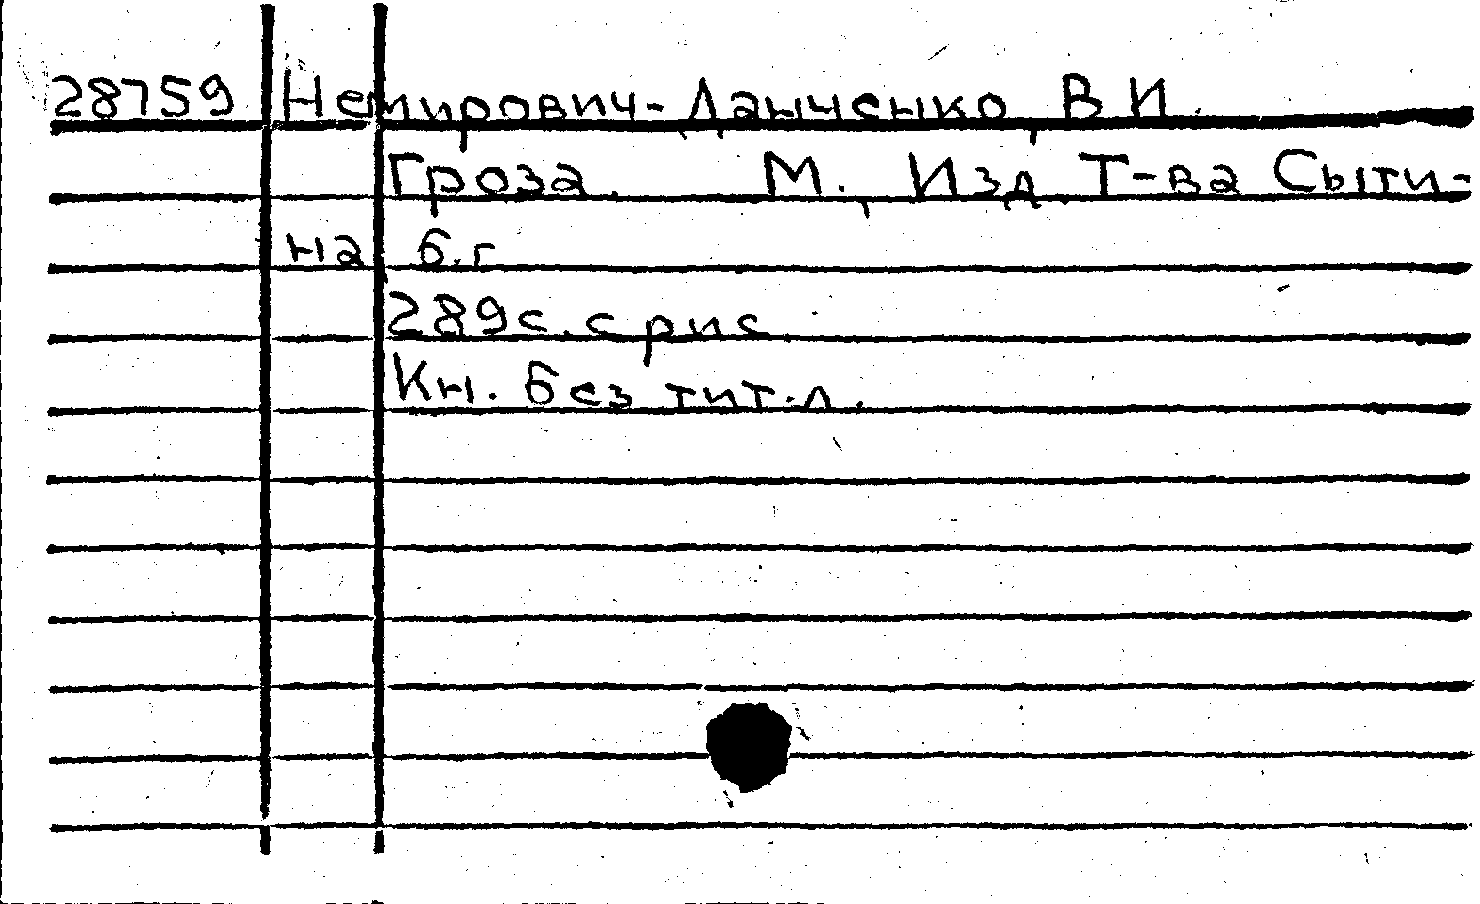 28759 Немирович-Данченко, В И.
Гроза. М., Изд. Т-ва Сыти-
на б.г
289с. с рис
Кн. без тит. л.